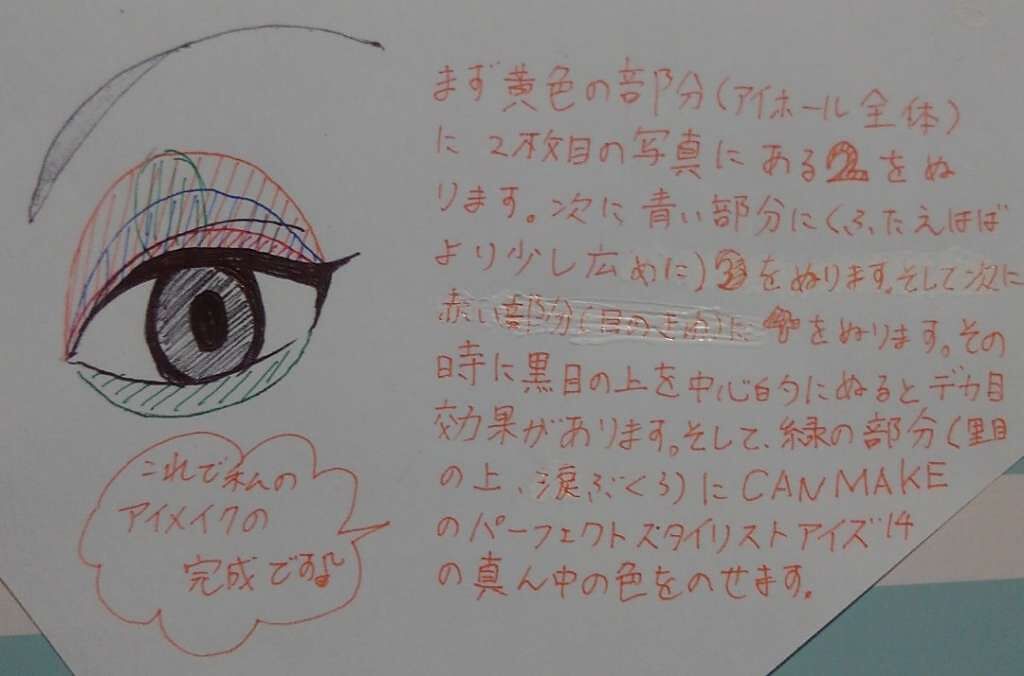 まず黄色の部分(アイホール全体)
に2枚目の写真にある2をぬ
ります。次に青い部分に(ふたえはば
より少し広めに)3をぬります。そして次に
赤い部分(目のきわ)に をぬります。その
時に黒目の上を中心的にぬるとデカ目
効果があります。そして、緑の部分(黒目
の上、涙ぶくろ)にCANMAKE
のパーフェクトスタイリストアイズ14
の真ん中の色をのせます。
これで私の
アイメイクの
完成です